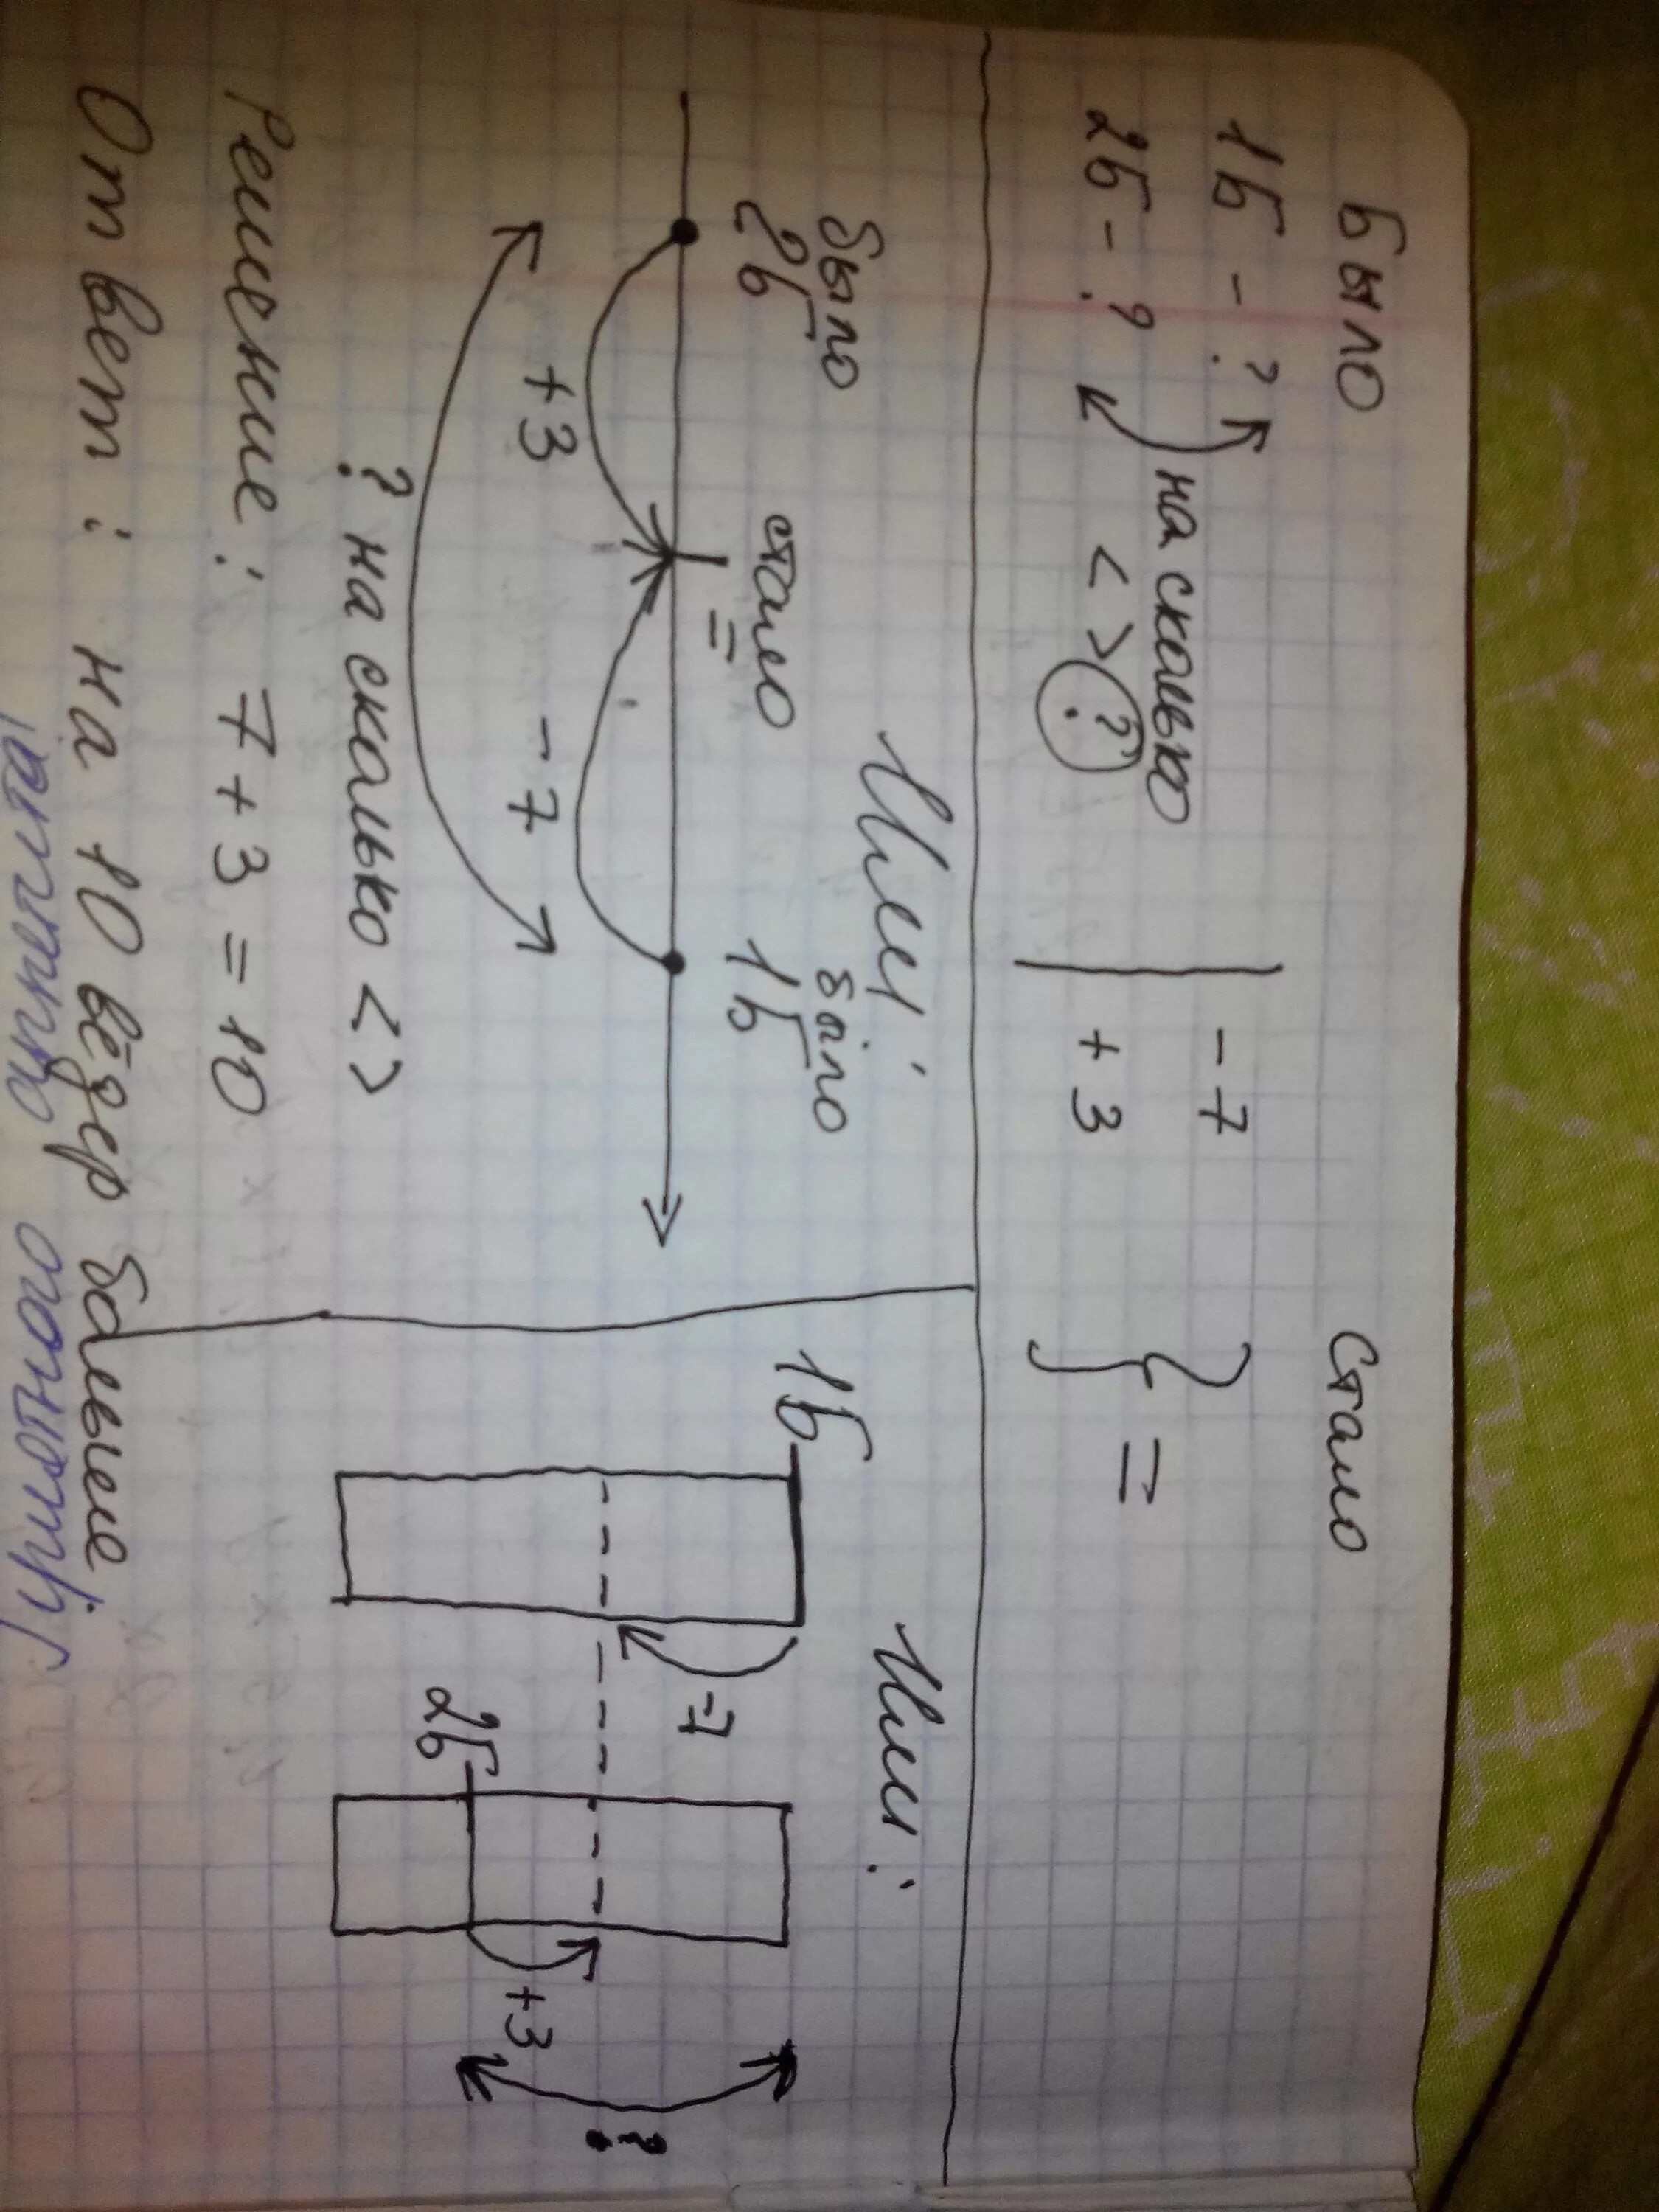 Было Стало
1б - ? на сколько - 7
2б - ? < > ? + 3 } =
Или:
было стало было
2б = 1б
+3 -7
? на сколько < >
Решение: 7 + 3 = 10
Ответ: на 10 вёдер больше.
Или:
1б
-7
2б
+3
?
Приятного аппетита!